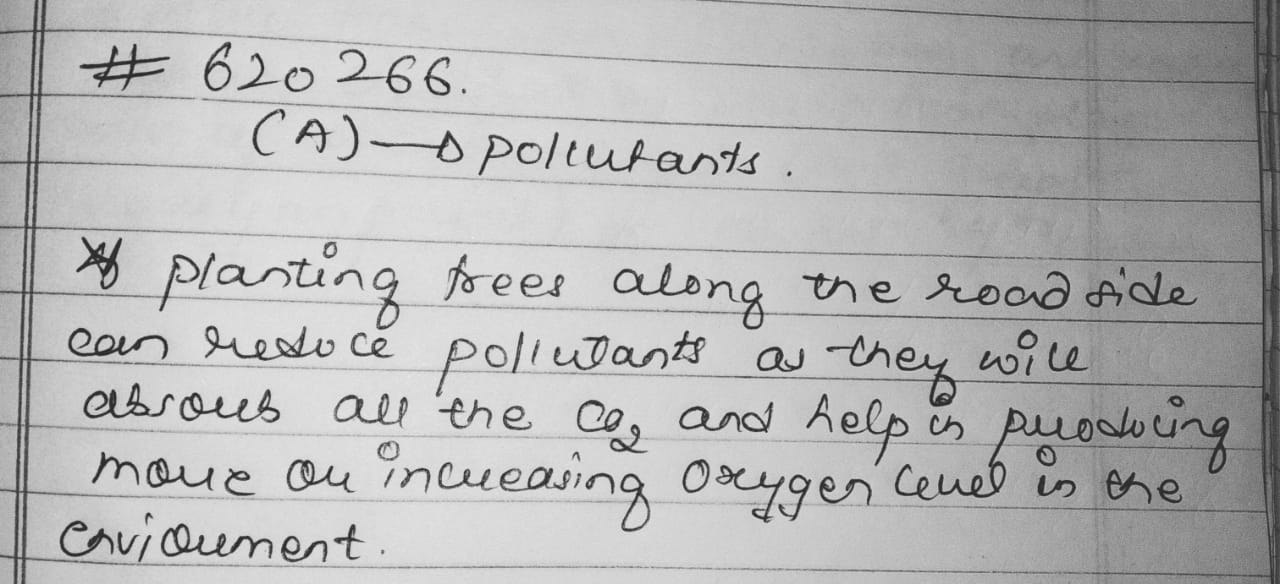 # 620266.
(A)→ pollutants.
* planting trees along the road side
can reduce pollutants as they will
absrorb all the CO2 and help in producing
more or increasing Oxygen level in the
enviorment.